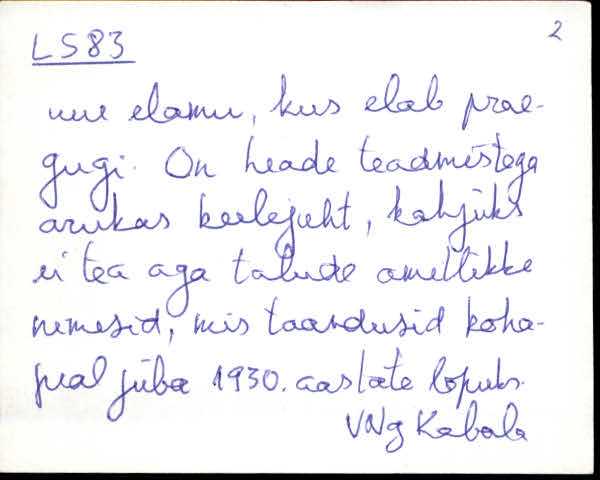 2
LS83
uue elamu, kus elab prae-
gugi. On heade teadmistega
arukas keelejuht, kahjuks
ei tea aga talude ametlikke
nimesid, mis taandusid koha-
peal juba 1930. aastate lõpuks.
VNg Kabala